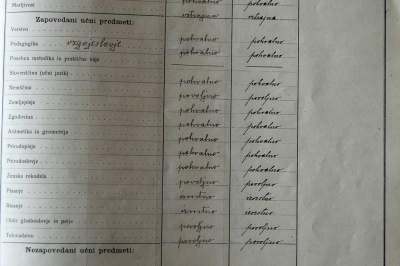 Marljivost pohvalno pohvalno
Zapovedani učni predmeti:
Verstvo
Pedagogika vzgojeslovje pohvalno pohvalno
Posebna metodika in praktične vaje pohvalno pohvalno
Slovenščina (učni jezik) pohvalno pohvalno
Nemščina povoljno povoljno
Zemljepisje pohvalno pohvalno
Zgodovina pohvalno pohvalno
Aritmetika in geometrija pohvalno pohvalno
Prirodopisje pohvalno pohvalno
Prirodoslovje pohvalno pohvalno
Ženska ročna dela povoljno povoljno
Pisanje
Risanje
Obče glasboslovje in petje povoljno povoljno
Telovadstvo povoljno povoljno
Nezapovedani učni predmeti: